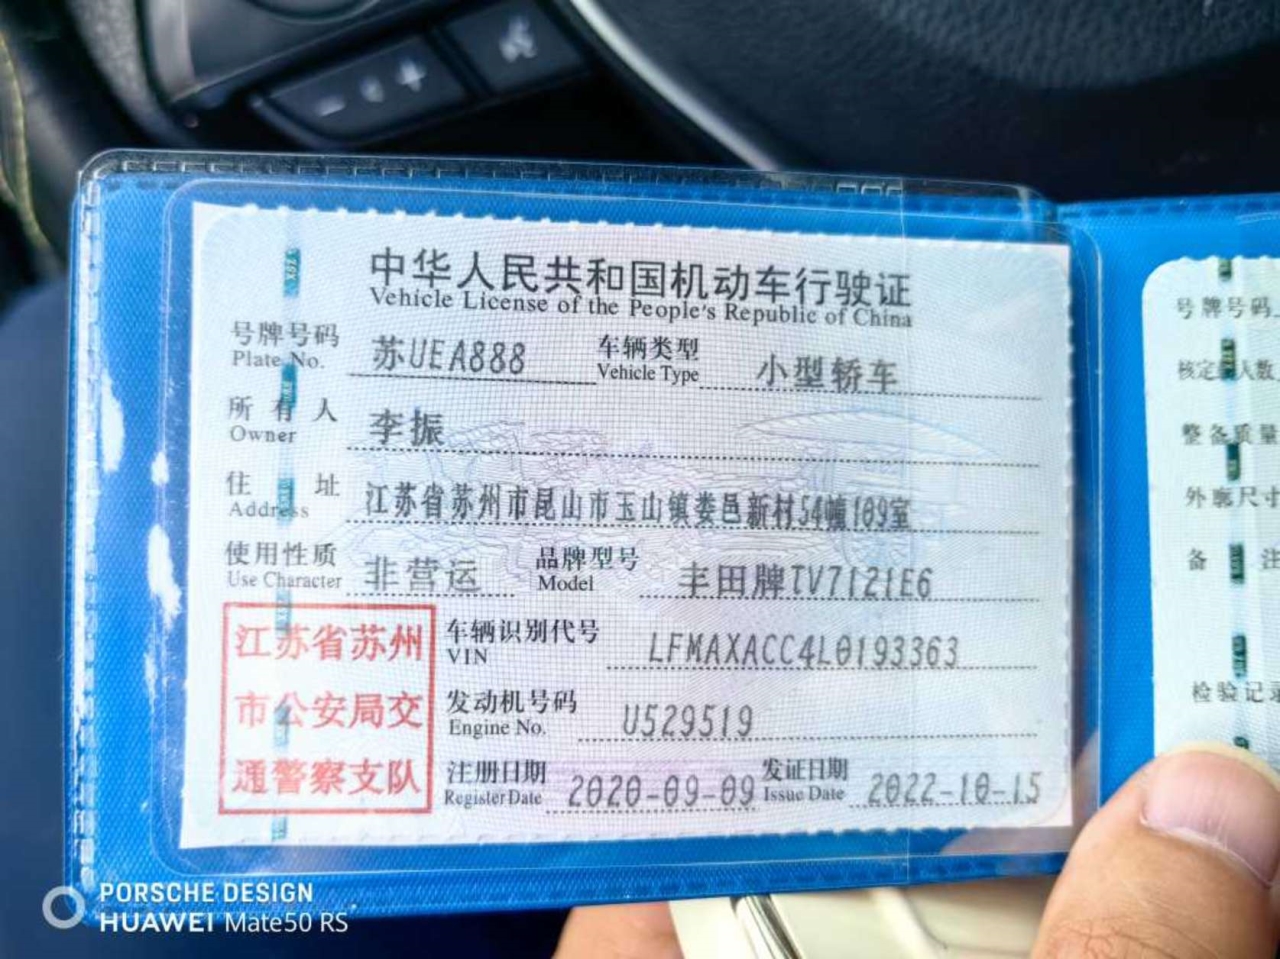 中华人民共和国机动车行驶证
Vehicle License of the People's Republic of China
号牌号码 苏UEA888 车辆类型 小型轿车
Plate No. Vehicle Type
所有人 李振
Owner
住址 江苏省苏州市昆山市玉山镇娄邑新村54幢109室
Address
使用性质 非营运 品牌型号 丰田牌TV7121E6
Use Character Model
江苏省苏州
市公安局交
通警察支队
车辆识别代号 LFMAXACC4L0193363
VIN
发动机号码 U529519
Engine No.
注册日期 2020-09-09 发证日期 2022-10-15
Register Date Issue Date
号牌号码
核定 人数
整备质量
外廓尺寸
备 注
检验记录
PORSCHE DESIGN
HUAWEI Mate50 RS